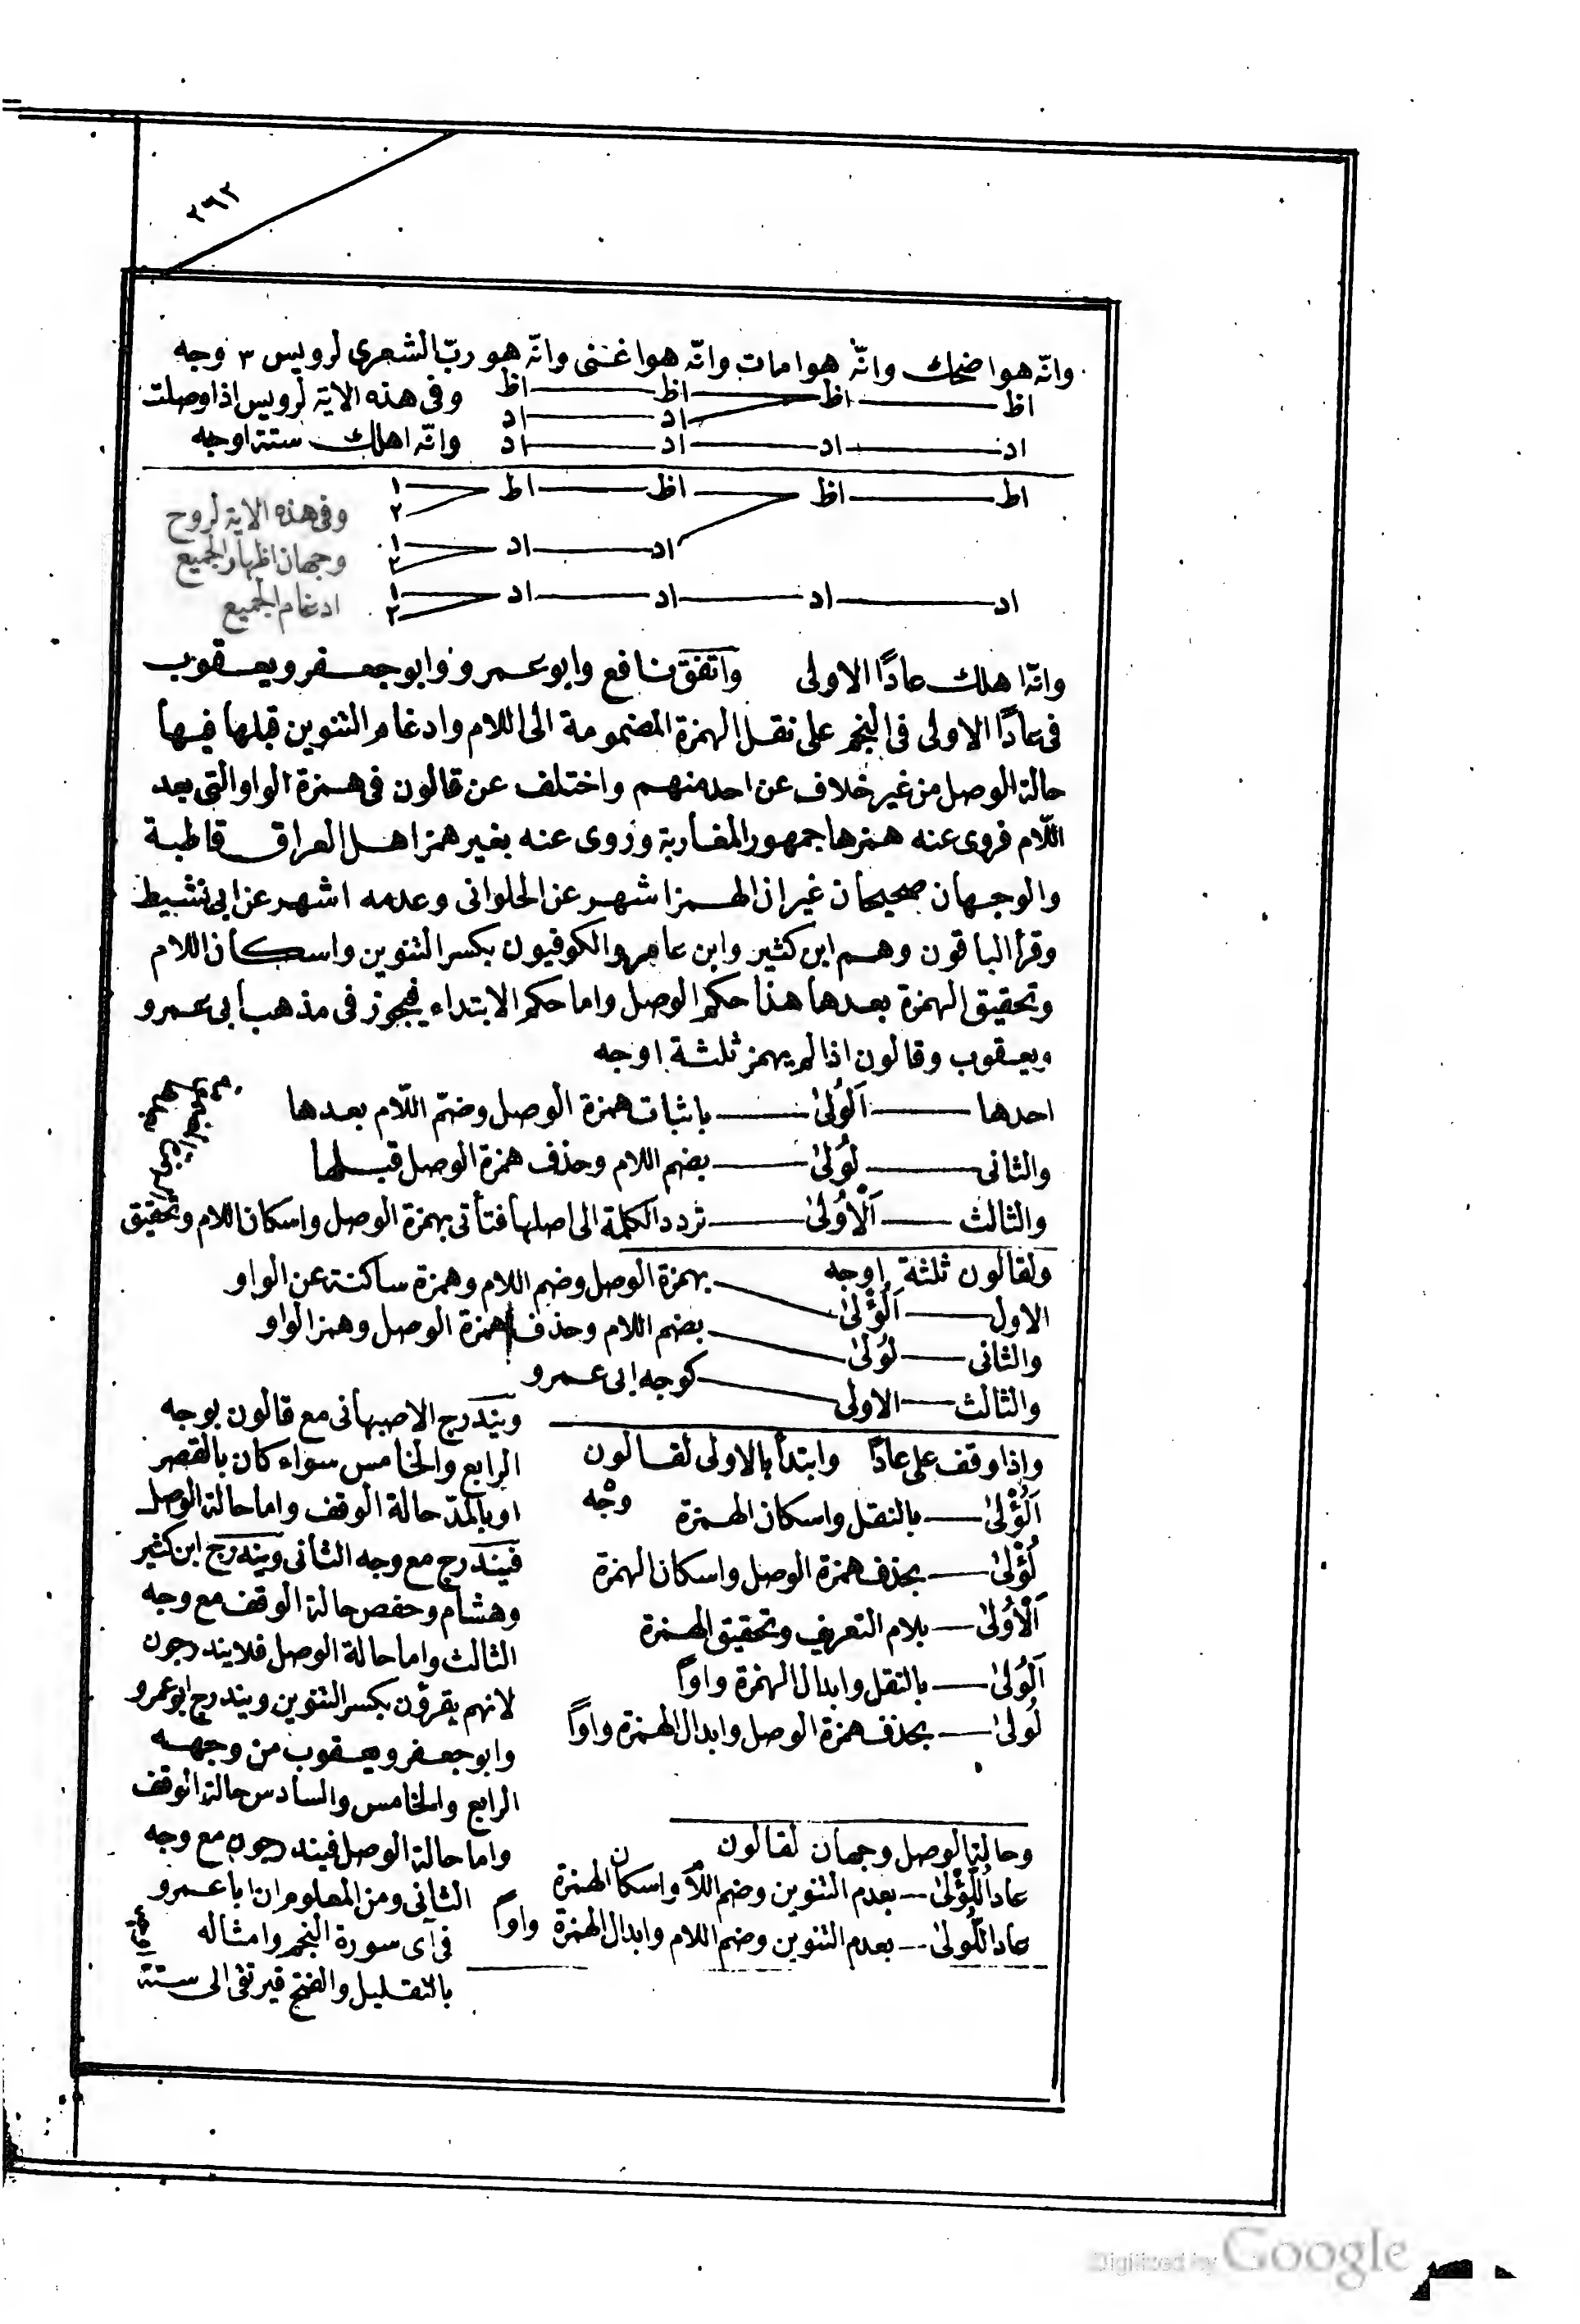 ٣٦٢
وانّه هو اضحك وانّه هو امات وانّه هو اغنى وانّه هو ربّ الشعرى لرويس ٣ وجه
اظ اظ اظ اظ
اد اد
اد اد اد اد
وفى هذه الاية لرويس اذا وصلت
وانّه اهلك ستة اوجه
اظ اظ اظ اظ ١ ٢
اد اد ١ ٢
اد اد اد اد ١ ٢
وفى هذه الاية لروح
وجهان اظهار الجميع
ادغام الجميع
وانّه اهلك عادًا الاولى واتفق نافع وابو عمرو وابو جعفر ويعقوب
فى عادًا الاولى فى النجم على نقل الهمزة المضمومة الى اللام وادغام التنوين قبلها فيها
حالة الوصل من غير خلاف عن احد منهم واختلف عن قالون فى همزة الواو التى بعد
اللّام فروى عنه همزها جمهور المغاربة وروى عنه بغير همز اهل العراق قاطبة
والوجهان صحيحان غير ان الهمز اشهر عن الحلوانى وعدمه اشهر عن ابى نشيط
وقرأ الباقون وهم ابن كثير وابن عامر والكوفيون بكسر التنوين واسكان اللام
وتحقيق الهمزة بعدها هذا حكم الوصل واما حكم الابتداء فيجوز فى مذهب ابى عمرو
ويعقوب وقالون اذا لم يهمز ثلثة اوجه
احدها اَلُولىٰ باثبات همزة الوصل وضمّ اللّام بعدها
والثانى لُولىٰ بضم اللام وحذف همزة الوصل قبلها
والثالث اَلْاُولىٰ تردد الكلمة الى اصلها فتأتى بهمزة الوصل واسكان اللام وتحقيق
ولقالون ثلثة اوجه
الاول اَلُؤْلىٰ بهمزة الوصل وضم اللام وهمزة ساكنة عن الواو
والثانى لُؤلىٰ بضم اللام وحذف همزة الوصل وهمز الواو
والثالث الاولى كوجه ابى عمرو
واذا وقف على عادًا وابتدأ بالاولى لقالون
وجْه
اَلُؤْلىٰ بالنقل واسكان الهمزة
لُؤْلىٰ بحذف همزة الوصل واسكان الهمزة
اَلْاُولىٰ بلام التعريف وتحقيق الهمزة
اَلُولىٰ بالنقل وابدال الهمزة واوًا
لُولىٰ بحذف همزة الوصل وابدال الهمزة واوًا
وحالة الوصل وجهان لقالون
عادا لُّؤْلىٰ بعدم التنوين وضم اللام واسكان الهمزة
عادا لُّولىٰ بعدم التنوين وضم اللام وابدال الهمزة واوًا
ويندرج الاصبهانى مع قالون بوجه
الرابع والخامس سواء كان بالقصر
او بالمدّ حالة الوقف واما حالة الوصل
فيندرج مع وجه الثانى ويندرج ابن كثير
وهشام وحفص حالة الوقف مع وجه
الثالث واما حالة الوصل فلا يندرجون
لانهم يقرؤن بكسر التنوين ويندرج ابو عمرو
وابو جعفر ويعقوب من وجهه
الرابع والخامس والسادس حالة الوقف
واما حالة الوصل فيندرجون مع وجه
الثانى ومن المعلوم ان ابا عمرو
فى آى سورة النجم وامثاله
بالتقليل والفتح فيرتقى الى ستة
Digitized by Google